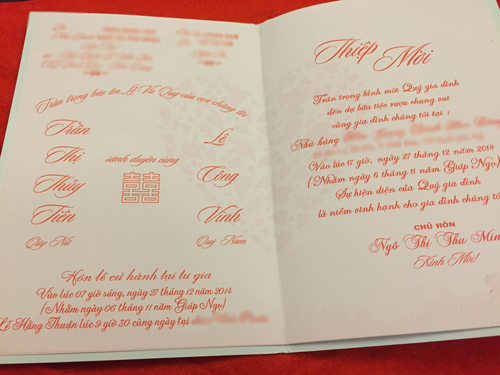 Trân trọng báo tin Lễ Vu Quy của con chúng tôi
Trần
Thị
Thủy
Tiên
Qúy Nữ
sánh duyên cùng
囍
Lê
Công
Vinh
Quý Nam
Hôn lễ cử hành tại tư gia
Vào lúc 07 giờ sáng, ngày 27 tháng 12 năm 2014
(Nhằm ngày 06 tháng 11 năm Giáp Ngọ)
Lễ Hằng Thuận lúc 9 giờ 30 cùng ngày tại
Thiệp Mời
Trân trọng kính mời Quý gia đình
đến dự bữa tiệc rượu chung vui
cùng gia đình chúng tôi tại :
Nhà hàng
Vào lúc 17 giờ, ngày 27 tháng 12 năm 2014
(Nhằm ngày 6 tháng 11 năm Giáp Ngọ)
Sự hiện diện của Quý gia đình
là niềm vinh hạnh cho gia đình chúng tô
CHỦ HÔN
Ngô Thị Thu Min
Kính Mời!